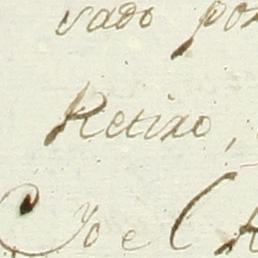 vado por
Retiro,
Yo el